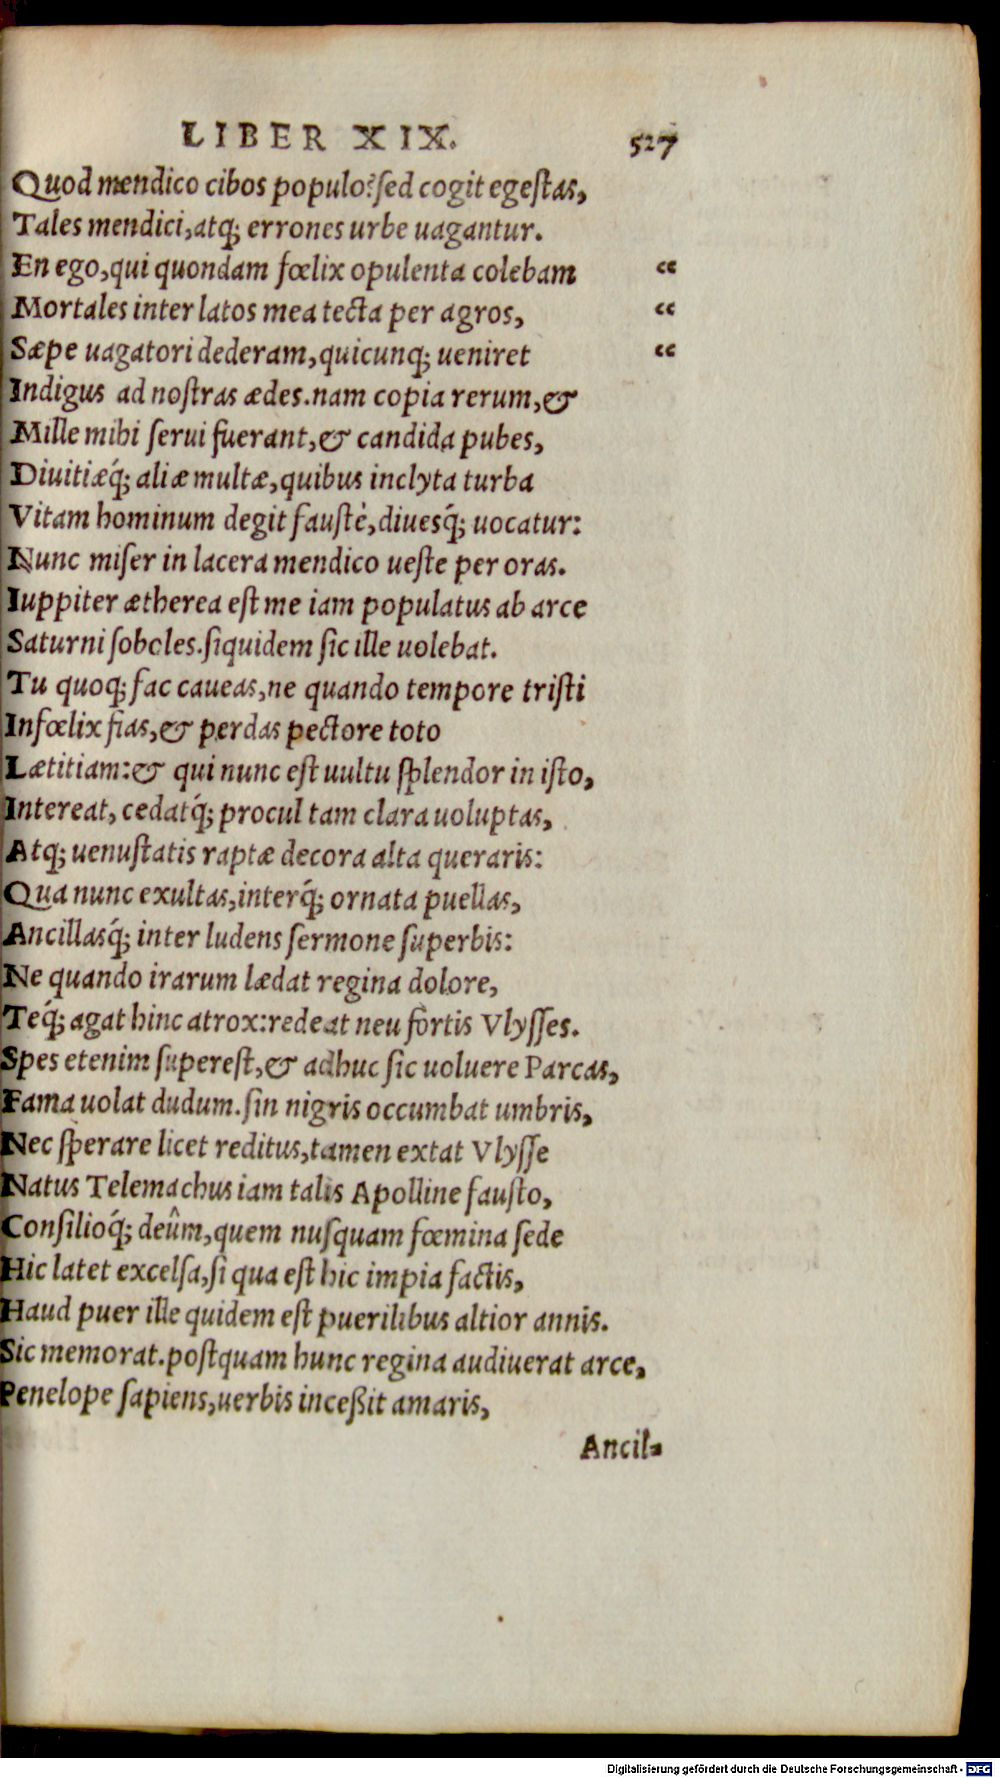 LIBER XIX. 527
Quod mendico cibos populo? sed cogit egestas,
Tales mendici, atq; errones urbe uagantur.
En ego, qui quondam fœlix opulenta colebam “
Mortales inter latos mea tecta per agros, “
Sæpe uagatori dederam, quicunq; ueniret “
Indigus ad nostras ædes. nam copia rerum, &
Mille mihi serui fuerant, & candida pubes,
Diuitiæq́; aliæ multæ, quibus inclyta turba
Vitam hominum degit faustè, diuesq́; uocatur:
Nunc miser in lacera mendico ueste per oras.
Iuppiter ætherea est me iam populatus ab arce
Saturni soboles. siquidem sic ille uolebat.
Tu quoq; fac caueas, ne quando tempore tristi
Infœlix fias, & perdas pectore toto
Lætitiam: & qui nunc est uultu splendor in isto,
Intereat, cedatq́; procul tam clara uoluptas,
Atq; uenustatis raptæ decora alta queraris:
Qua nunc exultas, interq́; ornata puellas,
Ancillasq́; inter ludens sermone superbis:
Ne quando irarum lædat regina dolore,
Teq́; agat hinc atrox: redeat neu fortis Vlysses.
Spes etenim superest, & adhuc sic uoluere Parcas,
Fama uolat dudum. sin nigris occumbat umbris,
Nec sperare licet reditus, tamen extat Vlysse
Natus Telemachus iam talis Apolline fausto,
Consilioq́; deûm, quem nusquam fœmina sede
Hic latet excelsa, si qua est hic impia factis,
Haud puer ille quidem est puerilibus altior annis.
Sic memorat. postquam hunc regina audiuerat arce,
Penelope sapiens, uerbis inceßit amaris,
Ancil-
Digitalisierung gefördert durch die Deutsche Forschungsgemeinschaft - DFG